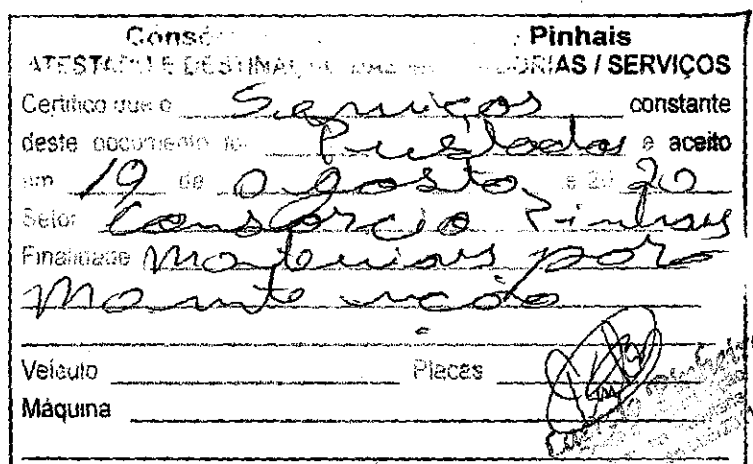 Consórcio Pinhais
ATESTADO E DESTINAÇÃO DAS MERCADORIAS / SERVIÇOS
Certifico que o Serviços constante
deste documento foi Prestados e aceito
em 19 de Agosto e 20 20
Setor Consórcio Pinhais
Finalidade Materiais para
Manutenção
Veículo Placas
Máquina